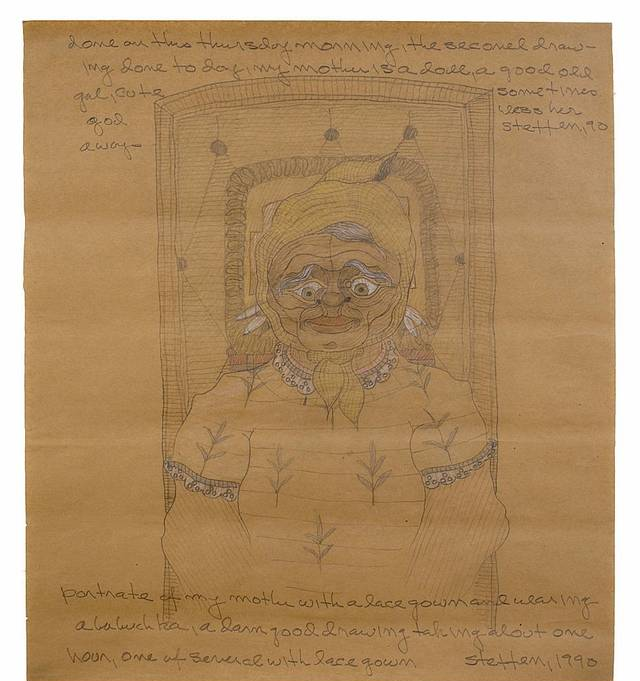 done on this thursday morning, the second draw-
ing done to day, my mother is a doll, a good old
gal, cute sometimes
god bless her
away- Steffen, 90
portrate of my mother with a lace gown and wearing
a babuchka, a darn good drawing taking about one
hour, one of several with lace gown Steffen, 1990